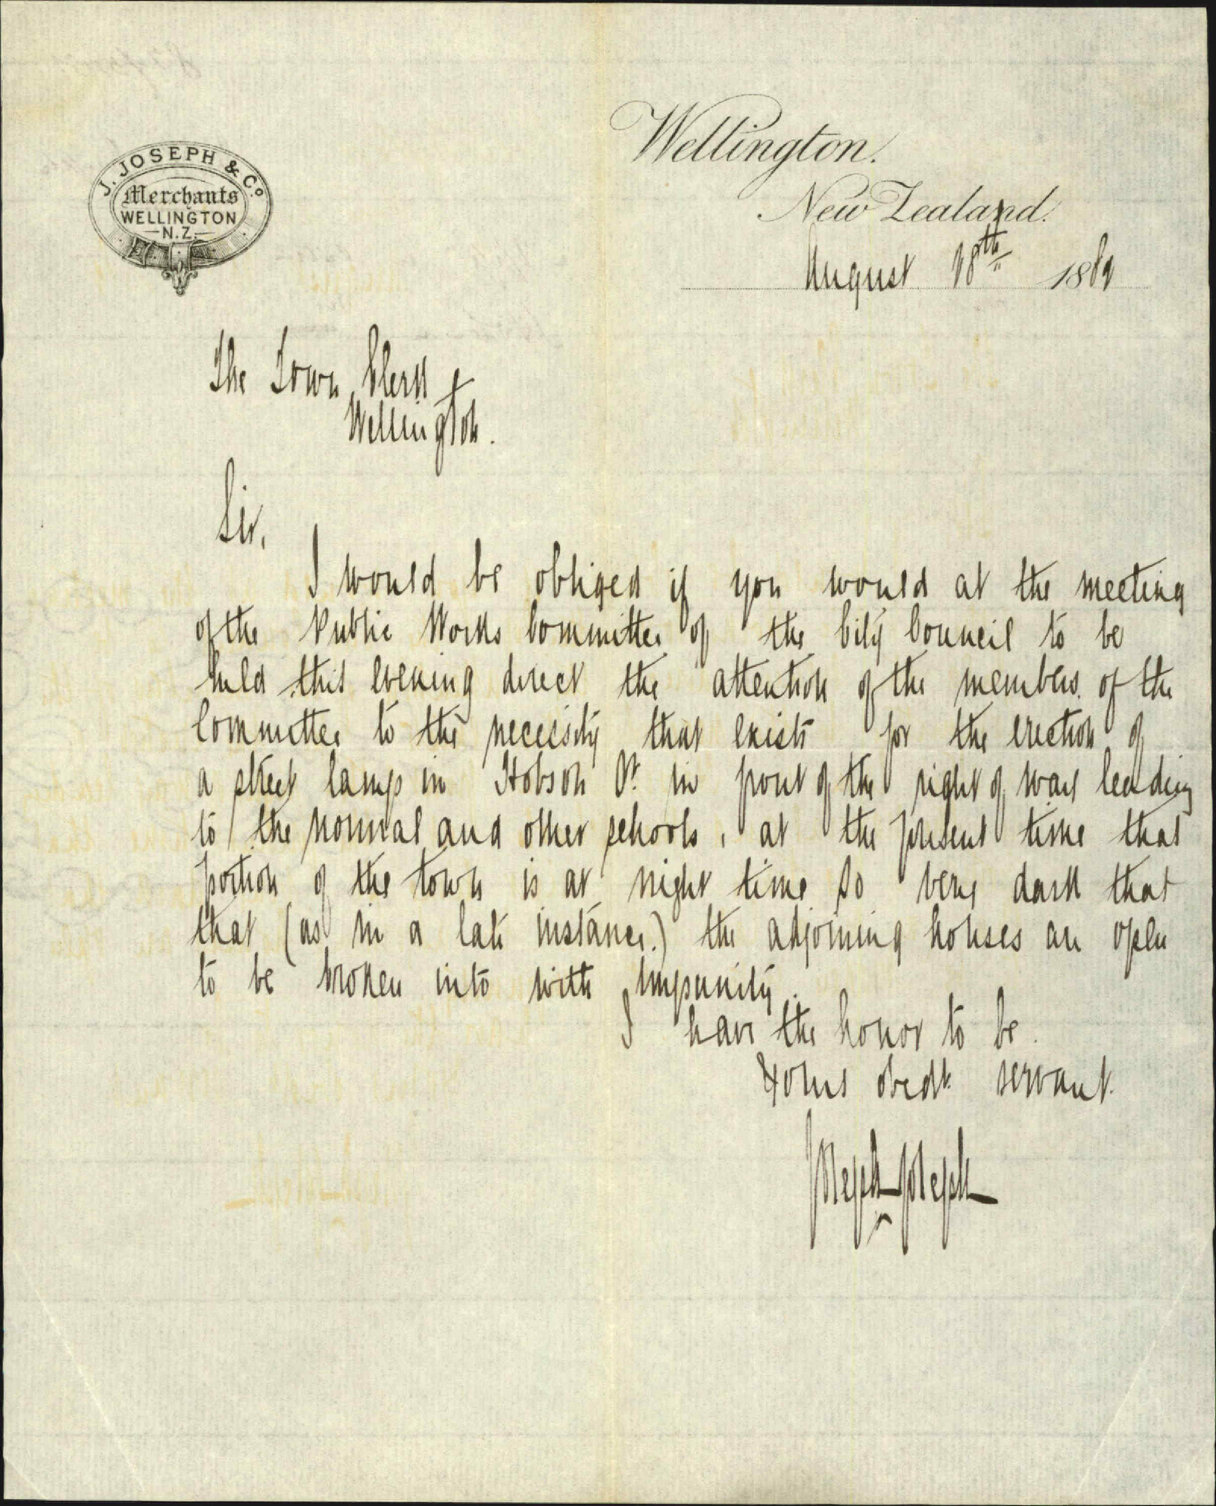 J. JOSEPH & Co.
Merchants
WELLINGTON
N.Z.
Wellington.
New Zealand.
August 18th 1889
The Town Clerk
Wellington.
Sir,
I would be obliged if you would at the meeting
of the Public Works Committee of the City Council to be
held this evening direct the attention of the members of the
Committee to the necessity that exists for the erection of
a street lamp in Hobson St. in front of the right of way leading
to the normal and other schools, at the present time that
portion of the town is at night time so very dark that
that (as in a late instance.) the adjoining houses are open
to be broken into with impunity.
I have the honor to be.
Yours obedt. servant.
Joseph Joseph